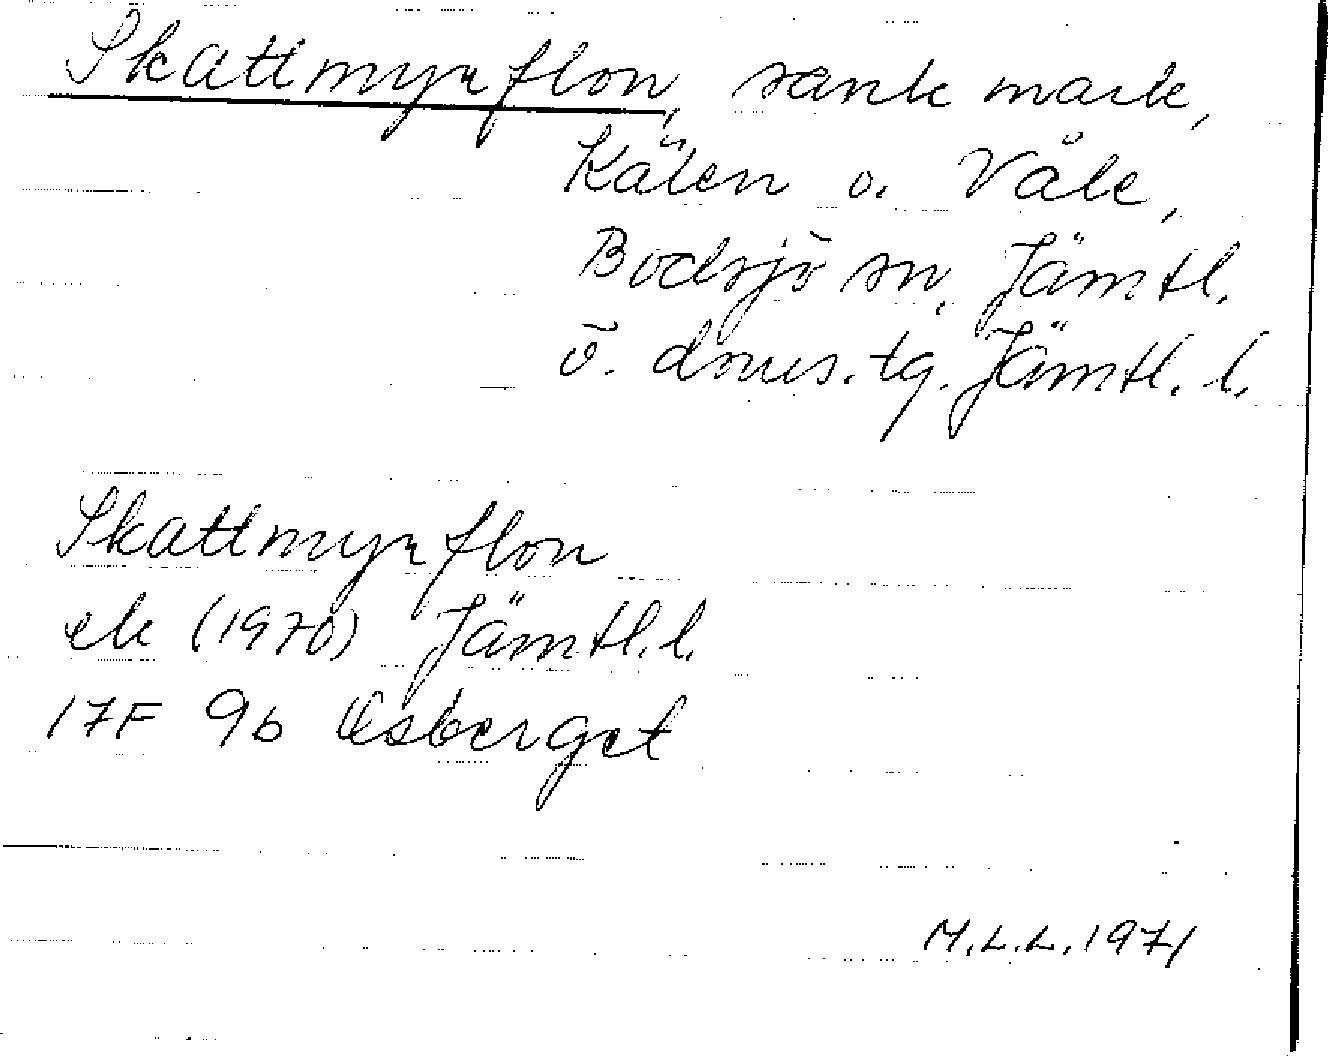 Skattmyrflon, sank mark,
Kälen o. Våle,
Bodsjö sn, Jämtl.
ö. doms. tg. Jämtl. l.
Skattmyrflon
ek (1970) Jämtl. l.
17F 9b Åsberget
M.L.L. 1971